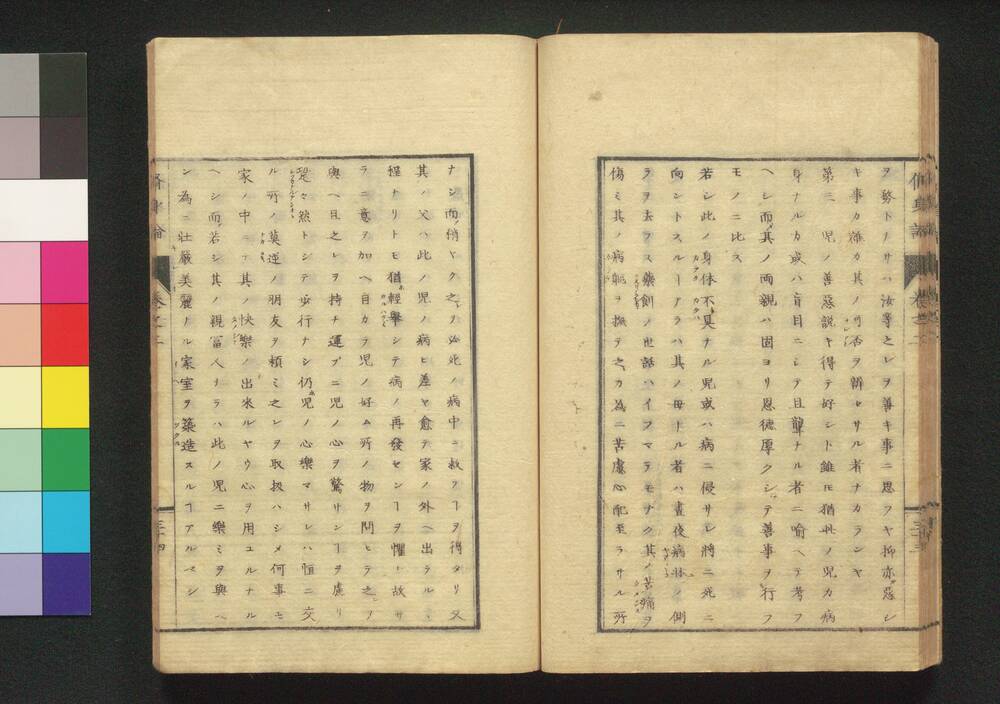 ヲ努トノサハ汝等之レヲ善キ事ニ思フヤ抑亦惡シ
キ事カ雖カ其ノ可否ヲ辨セサル者ナカランヤ
第三 児ノ善惡説キ得テ好シト雖モ猶此ノ児カ病
身ナルカ或ハ盲目ニシテ且聾ナル者ニ喻ヘテ考フ
ヘシ而其ノ両親ハ固ヨリ恩徳厚クシテ善事ヲ行フ
モノニ比ス
若シ此ノ身体不具ナル児或ハ病ニ侵サレ將ニ死ニ
向ントスルアラハ其ノ母トル者ハ晝夜病牀ノ側
ヲ去ラス藥劑ノ世話ハイフマテモナク其ノ苦痛ヲ
傷ミ其ノ病軀ヲ撫テ之カ為ニ苦慮心配至ラサル所
ナシ而倩ヤク之ヲ必死ノ病中ニ救フヿヲ得タリ又
其ノ父ハ此ノ児ノ病ヒ差ヤ愈テ家ノ外ヘ出ラルヽ
程トリトモ猶輕舉シテ病ノ再發センヿヲ懼レ故サ
ラニ意ヲ加ヘ自カラ児ノ好ム所ノ物ヲ問ヒテ之ヲ
與ヘ且之レヲ持チ運フニ児ノ心ヲ驚サンヿヲ慮リ
然トシテ必行ナシ仍児ノ心樂マサレハ恒ニ交
ル所ノ莫逆ノ朋友ヲ頼ミ之レヲ取扱ハシメ何事モ
家ノ中ニテ其ノ快樂ノ出來ルヤウ心ヲ用ユルナル
ヘシ而若シ其ノ親冨人ナラハ此ノ児ニ樂ミヲ與ヘ
ン為ニ壮嚴美麗ナル家室ヲ築造スルヿアルベシ